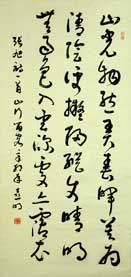 山光物態弄春暉莫為
輕陰便擬歸縱使晴明
無雨色入雲深處亦霑衣
張旭詩一首山行留客